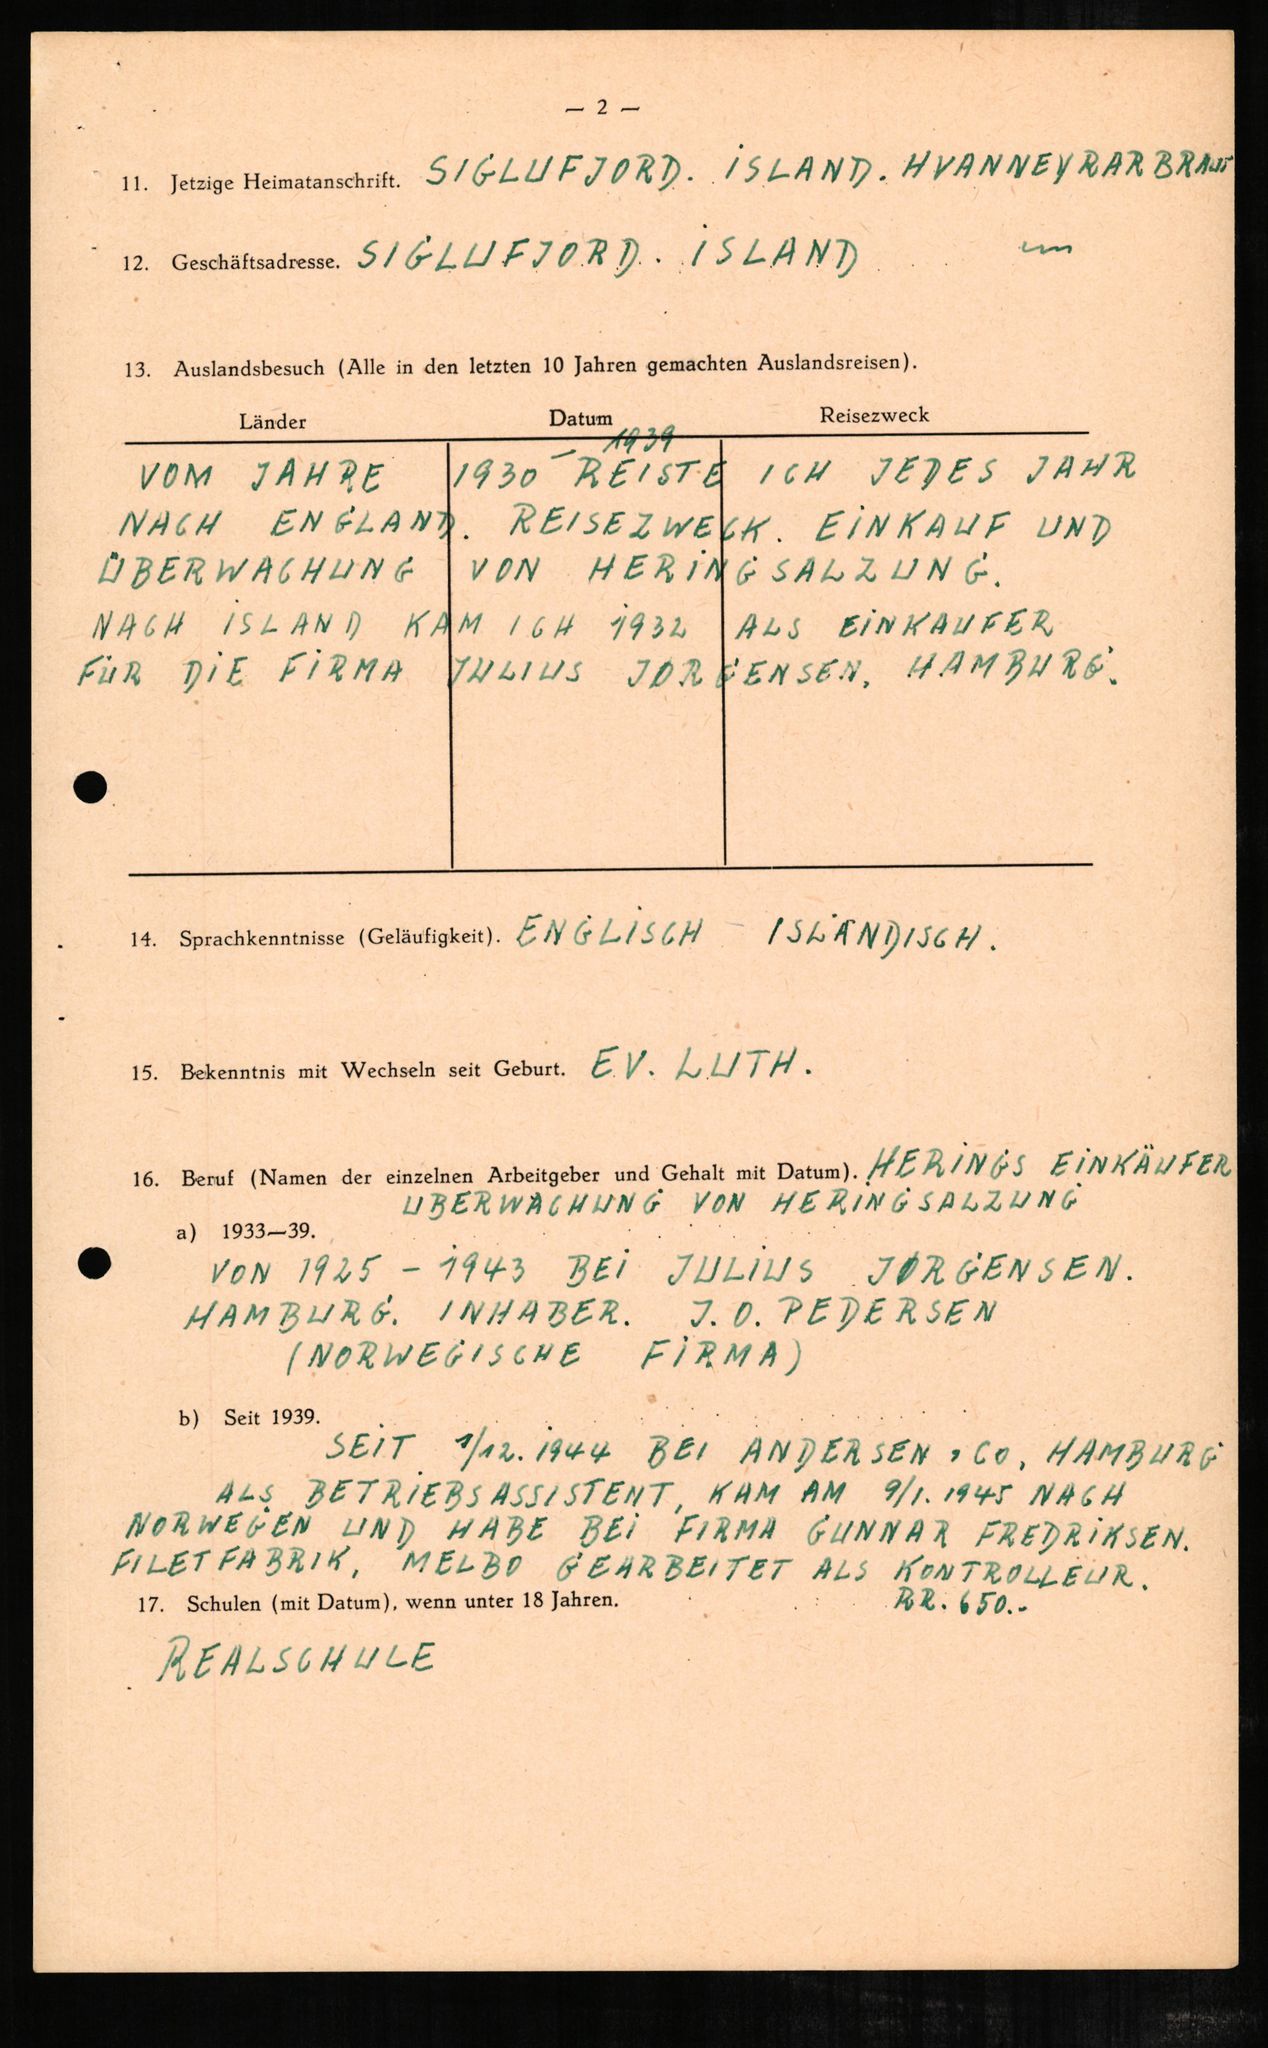 — 2 —
11. Jetzige Heimatanschrift. SIGLUFJORD. ISLAND. HVANNEYRARBRAUT
12. Geschäftsadresse. SIGLUFJORD. ISLAND
13. Auslandsbesuch (Alle in den letzten 10 Jahren gemachten Auslandsreisen).
Länder Datum Reisezweck
VOM JAHRE 1930 – 1939 REISTE ICH JEDES JAHR
NACH ENGLAND. REISEZWECK. EINKAUF UND
ÜBERWACHUNG VON HERINGSALZUNG.
NACH ISLAND KAM ICH 1932 ALS EINKAUFER
FÜR DIE FIRMA JULIUS JØRGENSEN, HAMBURG.
14. Sprachkenntnisse (Geläufigkeit). ENGLISCH – ISLÄNDISCH.
15. Bekenntnis mit Wechseln seit Geburt. EV. LUTH.
16. Beruf (Namen der einzelnen Arbeitgeber und Gehalt mit Datum). HERINGS EINKÄUFER
UBERWACHUNG VON HERINGSALZUNG
a) 1933—39.
VON 1925 – 1943 BEI JULIUS JØRGENSEN.
HAMBURG. INHABER. J. O. PEDERSEN
(NORWEGISCHE FIRMA)
b) Seit 1939.
SEIT 1/12. 1944 BEI ANDERSEN & CO, HAMBURG
ALS BETRIEBSASSISTENT, KAM AM 9/1. 1945 NACH
NORWEGEN UND HABE BEI FIRMA GUNNAR FREDRIKSEN.
FILETFABRIK, MELBO GEARBEITET ALS KONTROLLEUR.
RR. 650.-
17. Schulen (mit Datum), wenn unter 18 Jahren.
REALSCHULE